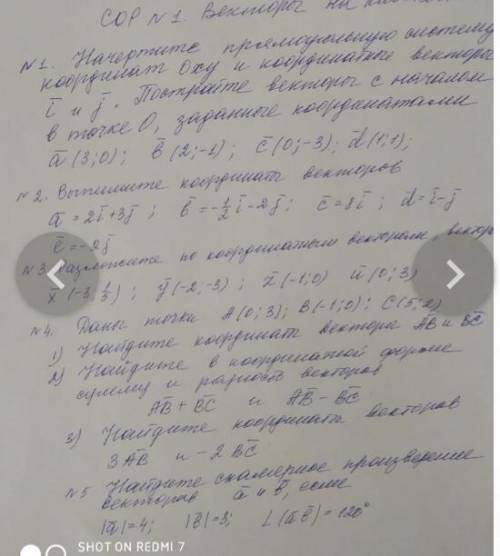 СОР №1. Векторы на
№1. Начертите прямоугольную систему
координат Oxy и координатные векторы
i̅ и j̅. Постройте векторы с началом
в точке O, заданные координатами
a̅ (3;0); b̅ (2;-1); c̅ (0;-3); d̅ (1;1);
№2. Выпишите координаты векторов
a̅ = 2i̅+3j̅; b̅ = -1/2 i̅-2j̅; c̅ = 8i̅; d̅ = i̅-j̅
e̅ = -2j̅
№3 Разложите по координатным векторам, вектор
x̅ (-3; 1/5); y̅ (-2;-3); z̅ (-1;0) u̅ (0;3)
№4. Даны точки A(0;3); B(-1;0); C(5;2)
1) Найдите координаты вектора A̅B̅ и B̅C̅
2) Найдите в координатной форме
сумму и разность векторов
A̅B̅ + B̅C̅ и A̅B̅ - B̅C̅
3) Найдите координаты векторов
3A̅B̅ и -2B̅C̅
№5 Найдите скалярное произведение
векторов a̅ и b̅, если
|a̅|=4; |b̅|=3; ∠(a̅ b̅)=120°
SHOT ON REDMI 7